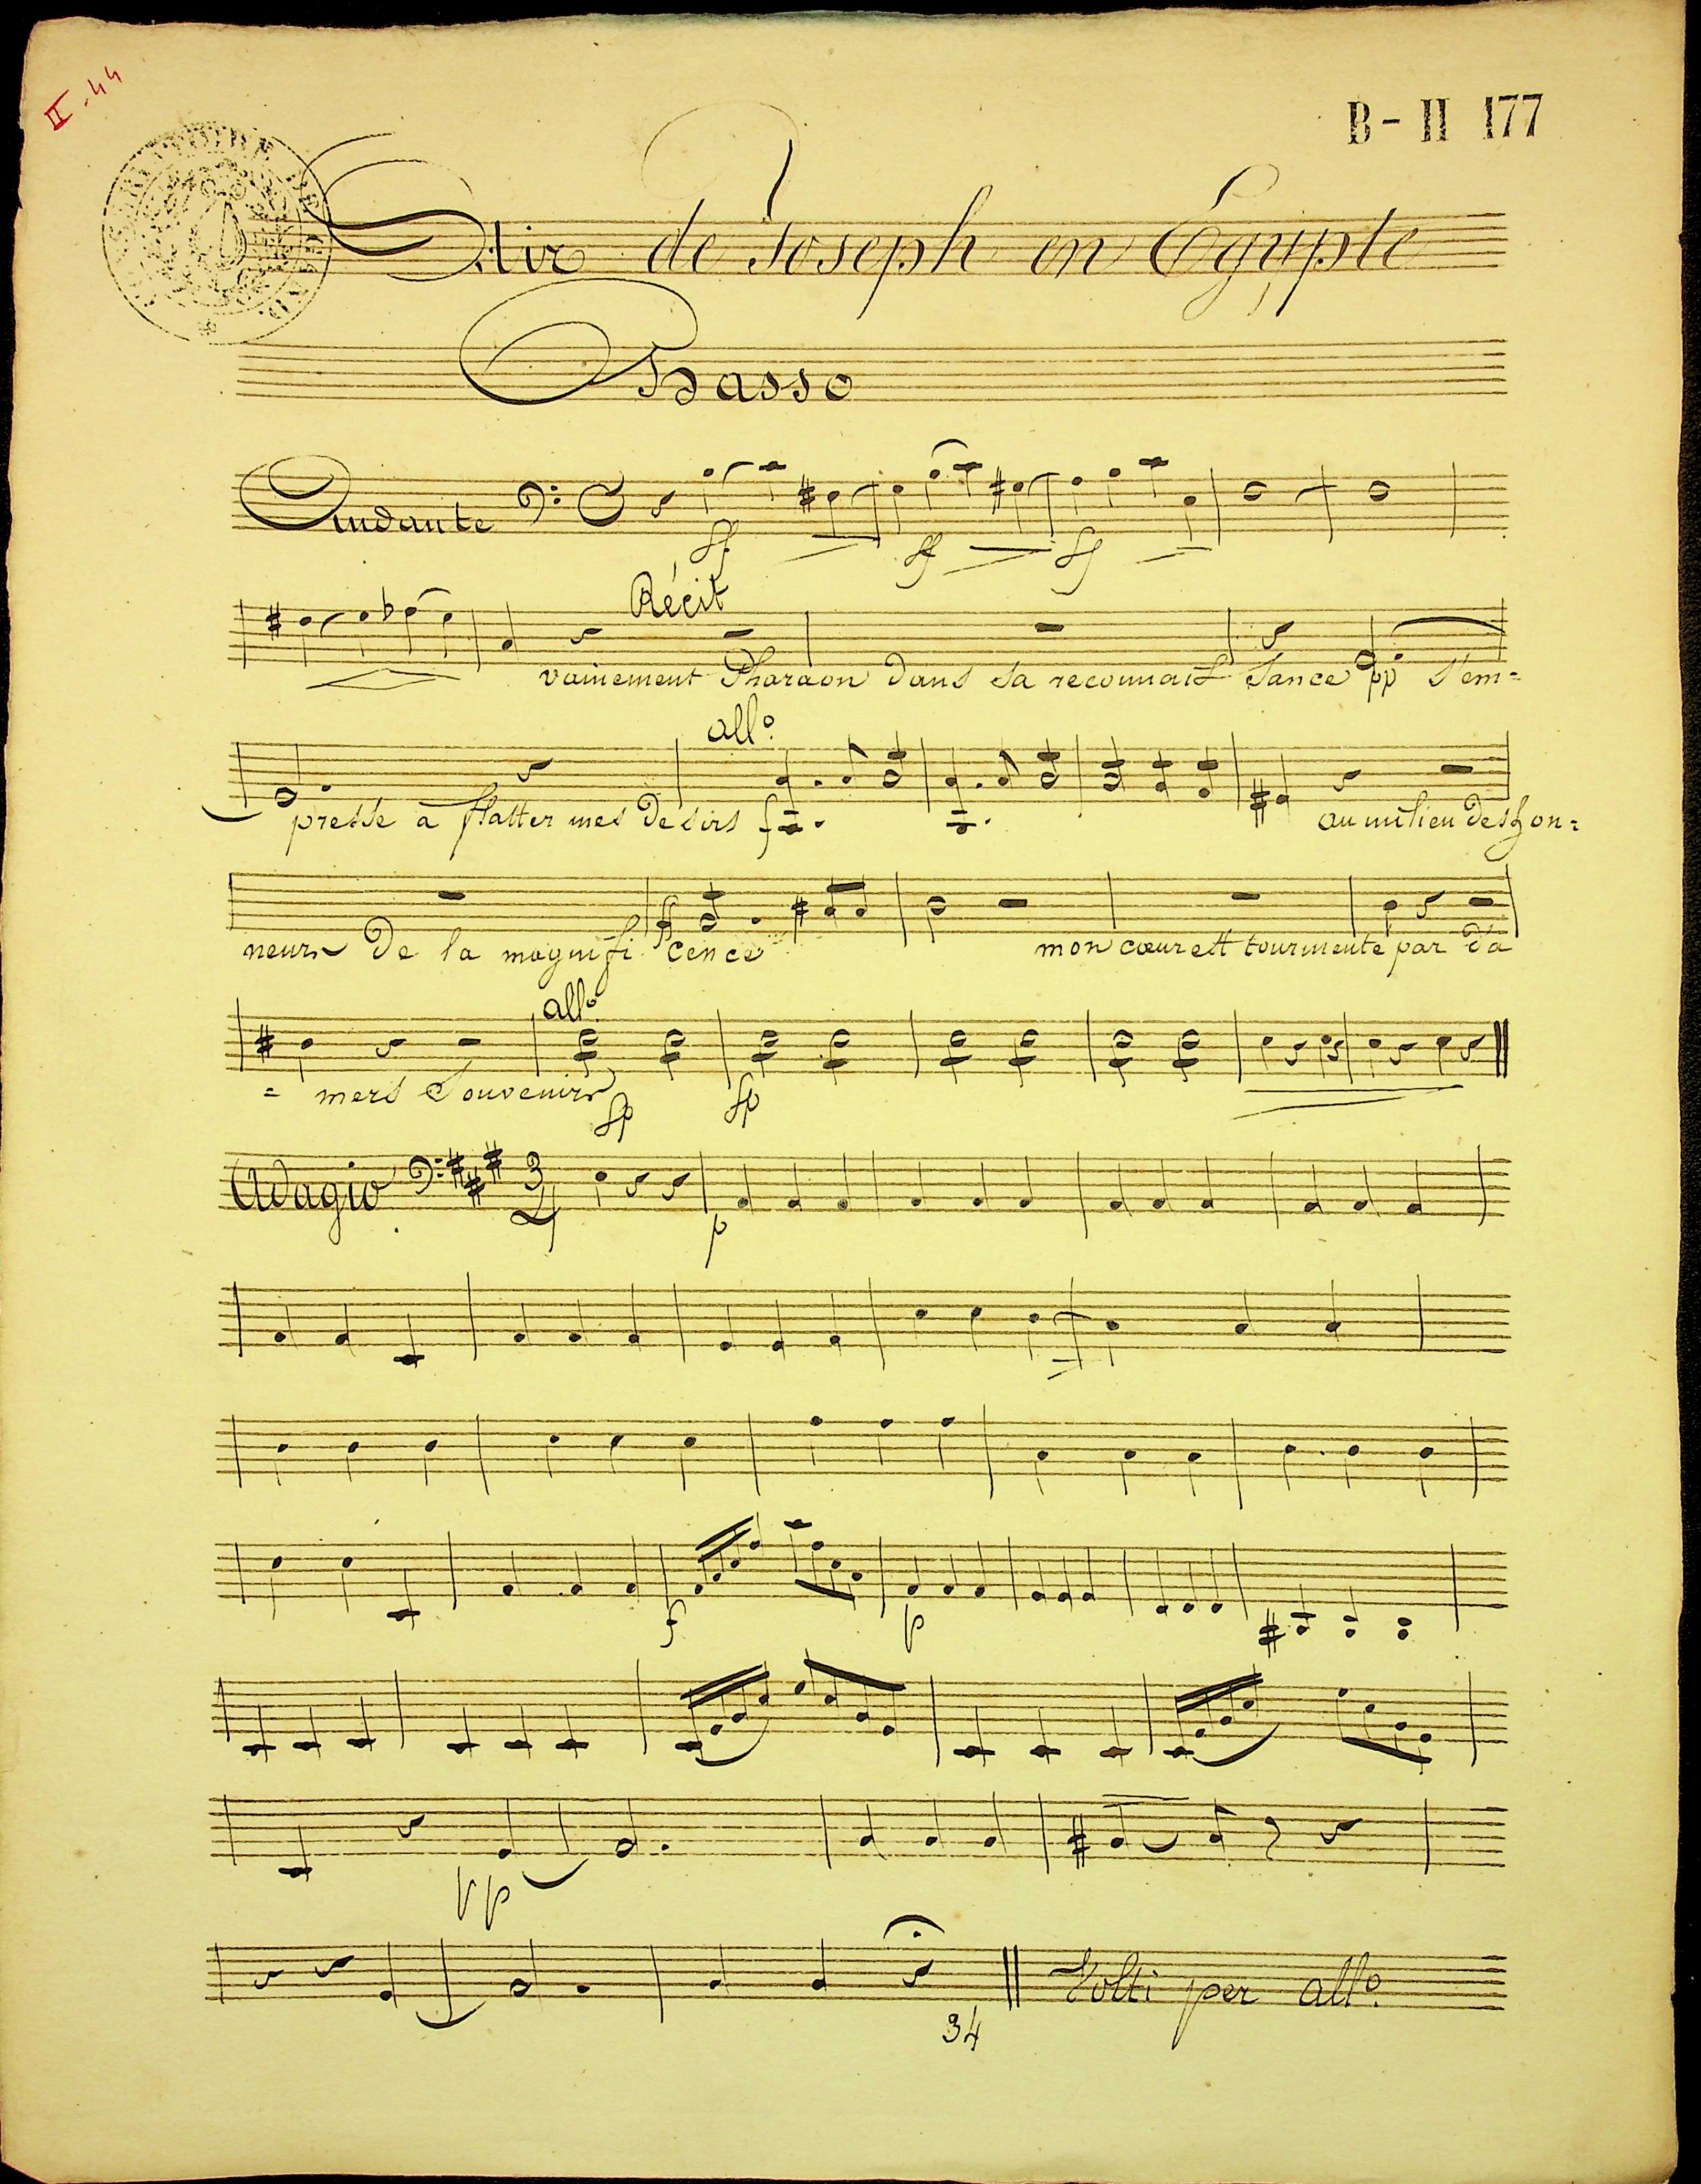 II-44
B - II 177
Air de Joseph en Égypte
Basso
Andante
ff ff ff
Récit
vainement Pharaon dans sa reconnais sance pp s'em=
all°.
presse a flatter mes desirs f au milieu des hon=
neurs De la magnifi ff cence mon cœur est tourmenté par d'a
all°.
= mers Souvenirs fp fp
Adagio 3/4
p
f p
pp
34
Volti per all°.